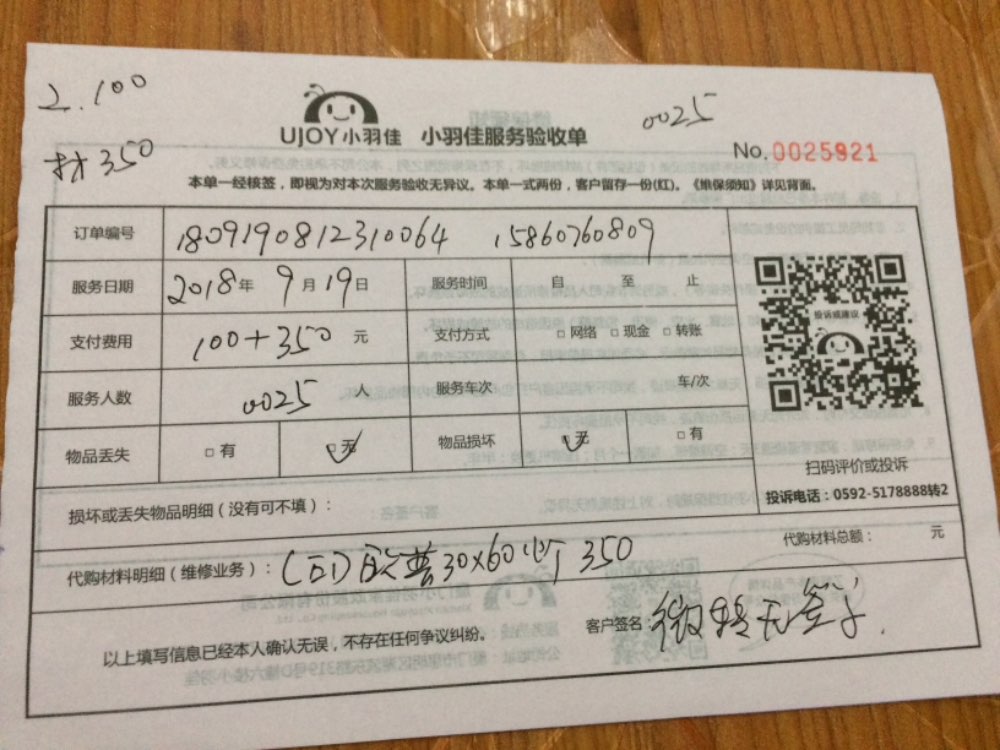 2.100
材350
UJOY小羽佳 小羽佳服务验收单
0025
No.0025921
本单一经核签，即视为对本次服务验收无异议。本单一式两份，客户留存一份(红)。《维保须知》详见背面。
订单编号 1809190812310064 15860760809
服务日期 2018年9月19日 服务时间 自 至 止
支付费用 100+350 元 支付方式 □网络 □现金 □转账
服务人数 0025 人 服务车次 车/次
物品丢失 □有 □无 物品损坏 □无 □有
投诉或建议
扫码评价或投诉
投诉电话：0592-5178888转2
损坏或丢失物品明细（没有可不填）：
代购材料总额： 元
代购材料明细（维修业务）： 欧普30×60 灯 350
以上填写信息已经本人确认无误，不存在任何争议纠纷。
客户签名： 微转无签字.